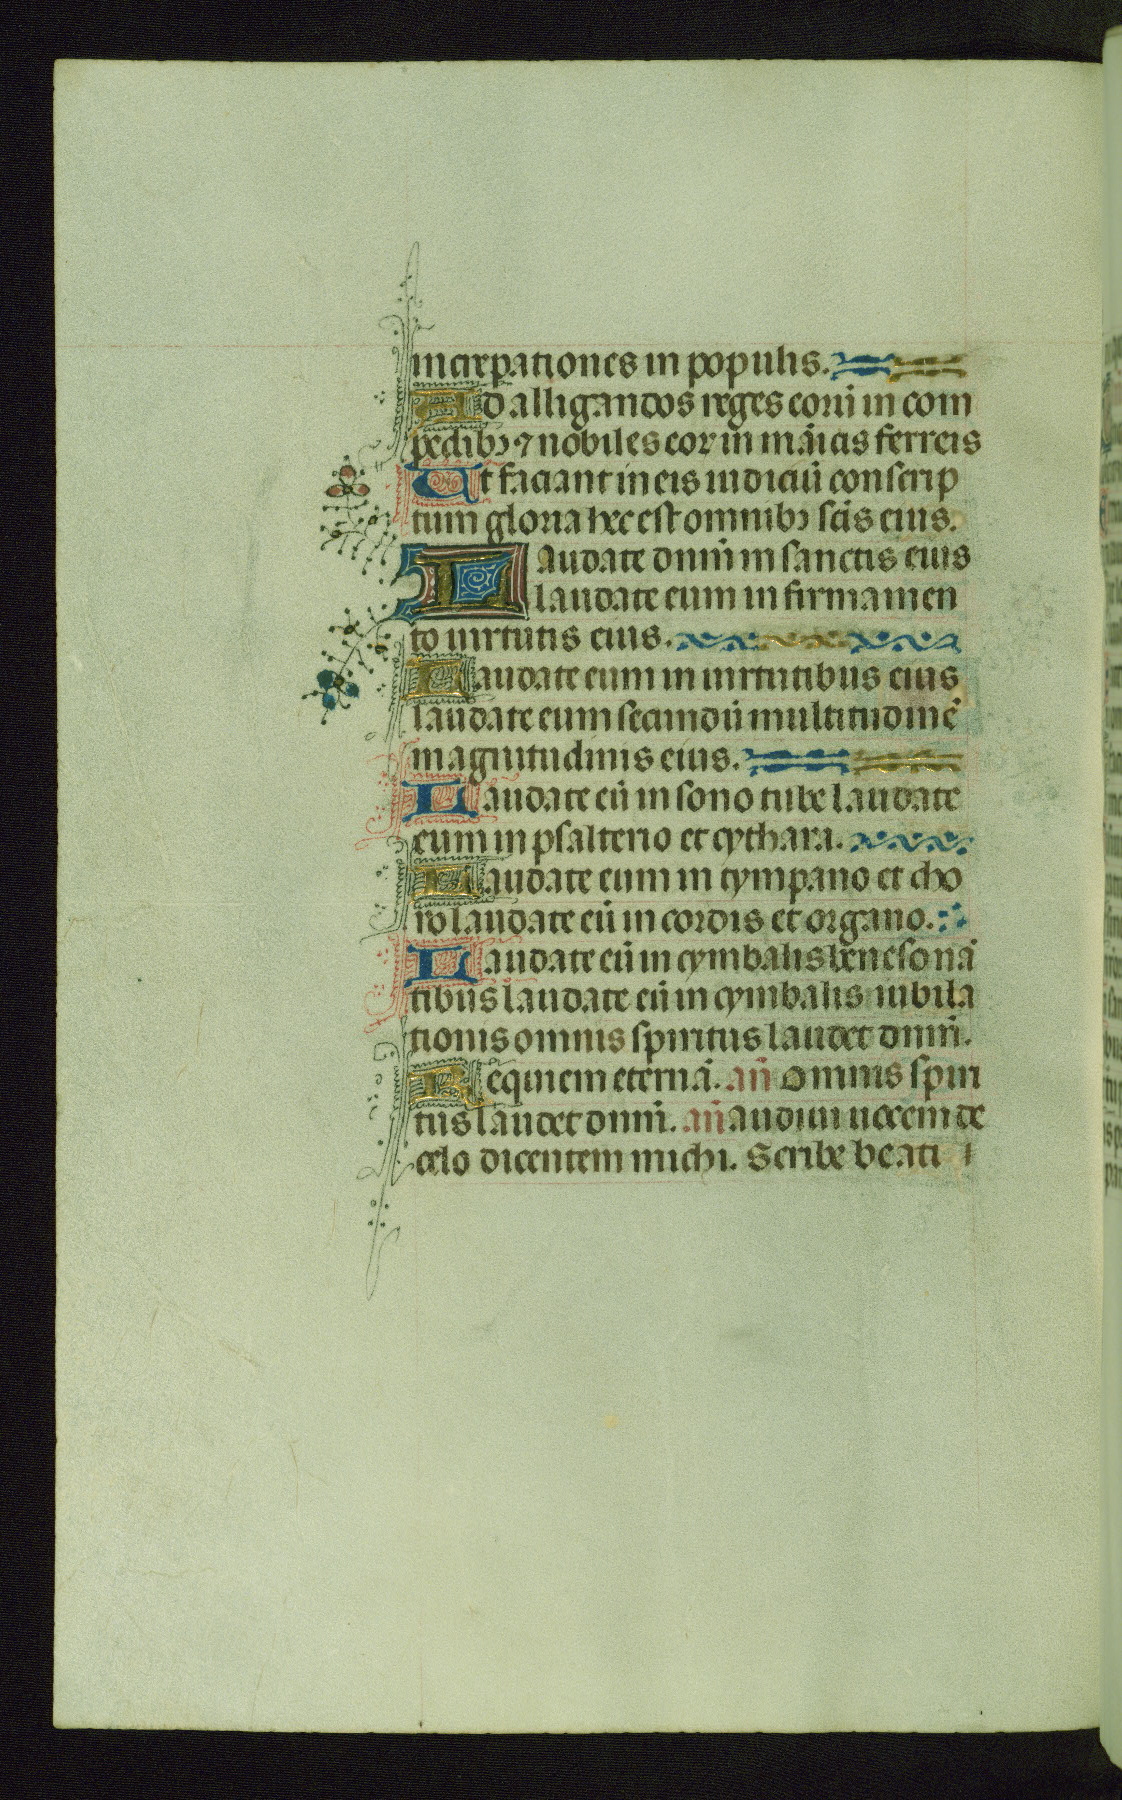 increpationes in populis.
Ad alligandos reges eorũ in com
pedibꝫ ⁊ nobiles eorꝝ in mãicis ferreis
Ut faciant in eis iudiciũ conscrip
tum gloria hec est omnibꝫ scĩs eius.
Laudate dnm̃ in sanctis eius
laudate eum in firmamen
to uirtutis eius.
Laudate eum in uirtutibus eius
laudate eum secundũ multitudinẽ
magnitudinis eius.
Laudate eũ in sono tube laudate
eum in psalterio et cythara.
Laudate eum in tympano et cho
ro laudate eũ in cordis et organo.
Laudate eũ in cymbalis benesonã
tibus laudate eũ in cymbalis iubila
tionis omnis spiritus laudet dnm̃.
Requiem eternã. añ Omnis spiri
tus laudet dnm̃. añ audiui uocem de
celo dicentem michi. Scribe beati